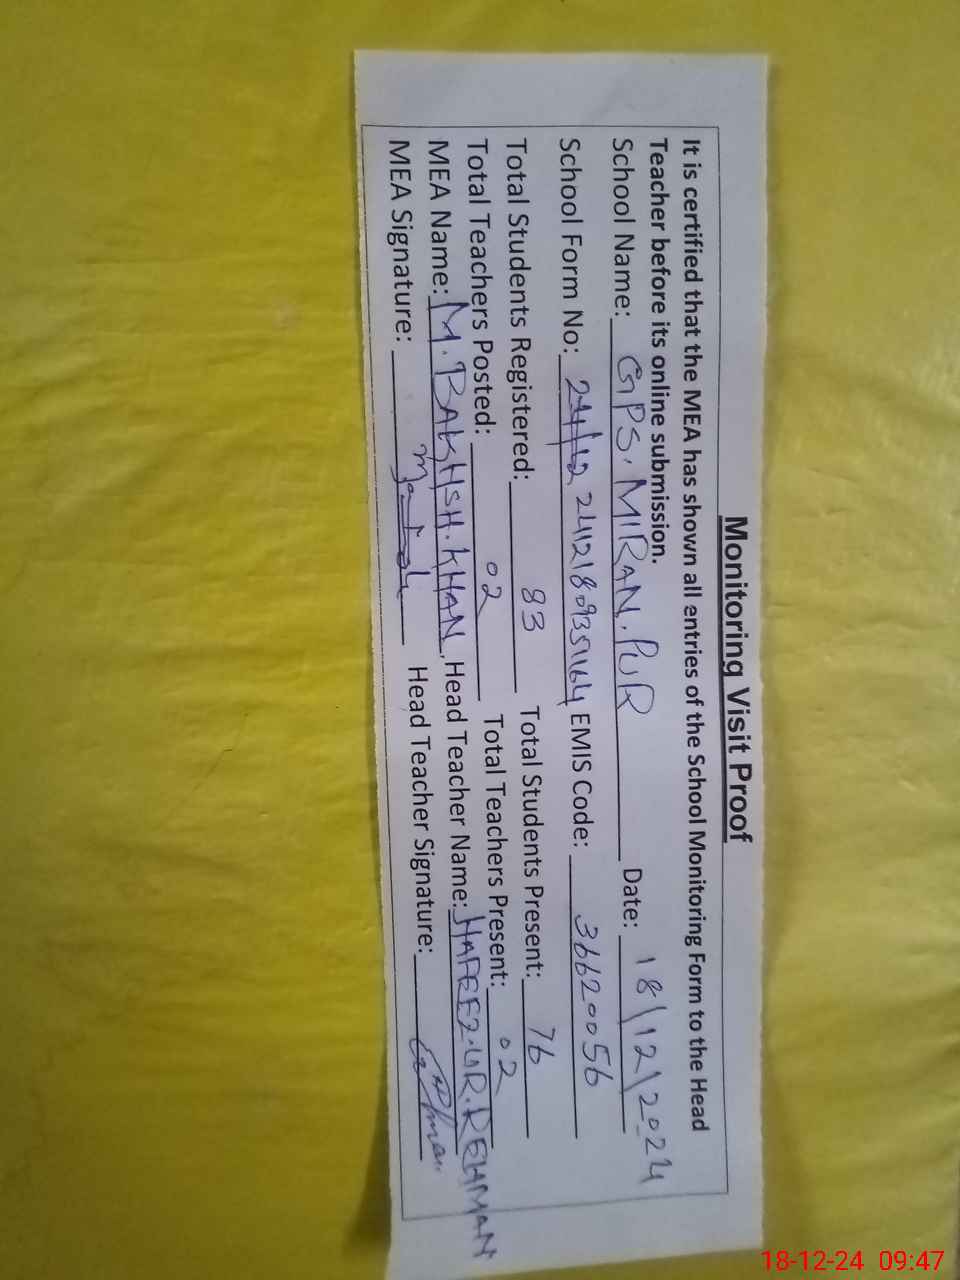 Monitoring Visit Proof
It is certified that the MEA has shown all entries of the School Monitoring Form to the Head
Teacher before its online submission.
School Name: GPS. MIRAN. PUR Date: 18/12/2024
School Form No: 24121809351164 EMIS Code: 36620056
Total Students Registered: 83 Total Students Present: 76
Total Teachers Posted: 02 Total Teachers Present: 02
MEA Name: M. BAKHSH. KHAN, Head Teacher Name: HAFEEZ. UR. REHMAN
MEA Signature: Head Teacher Signature:
18-12-24 09:47